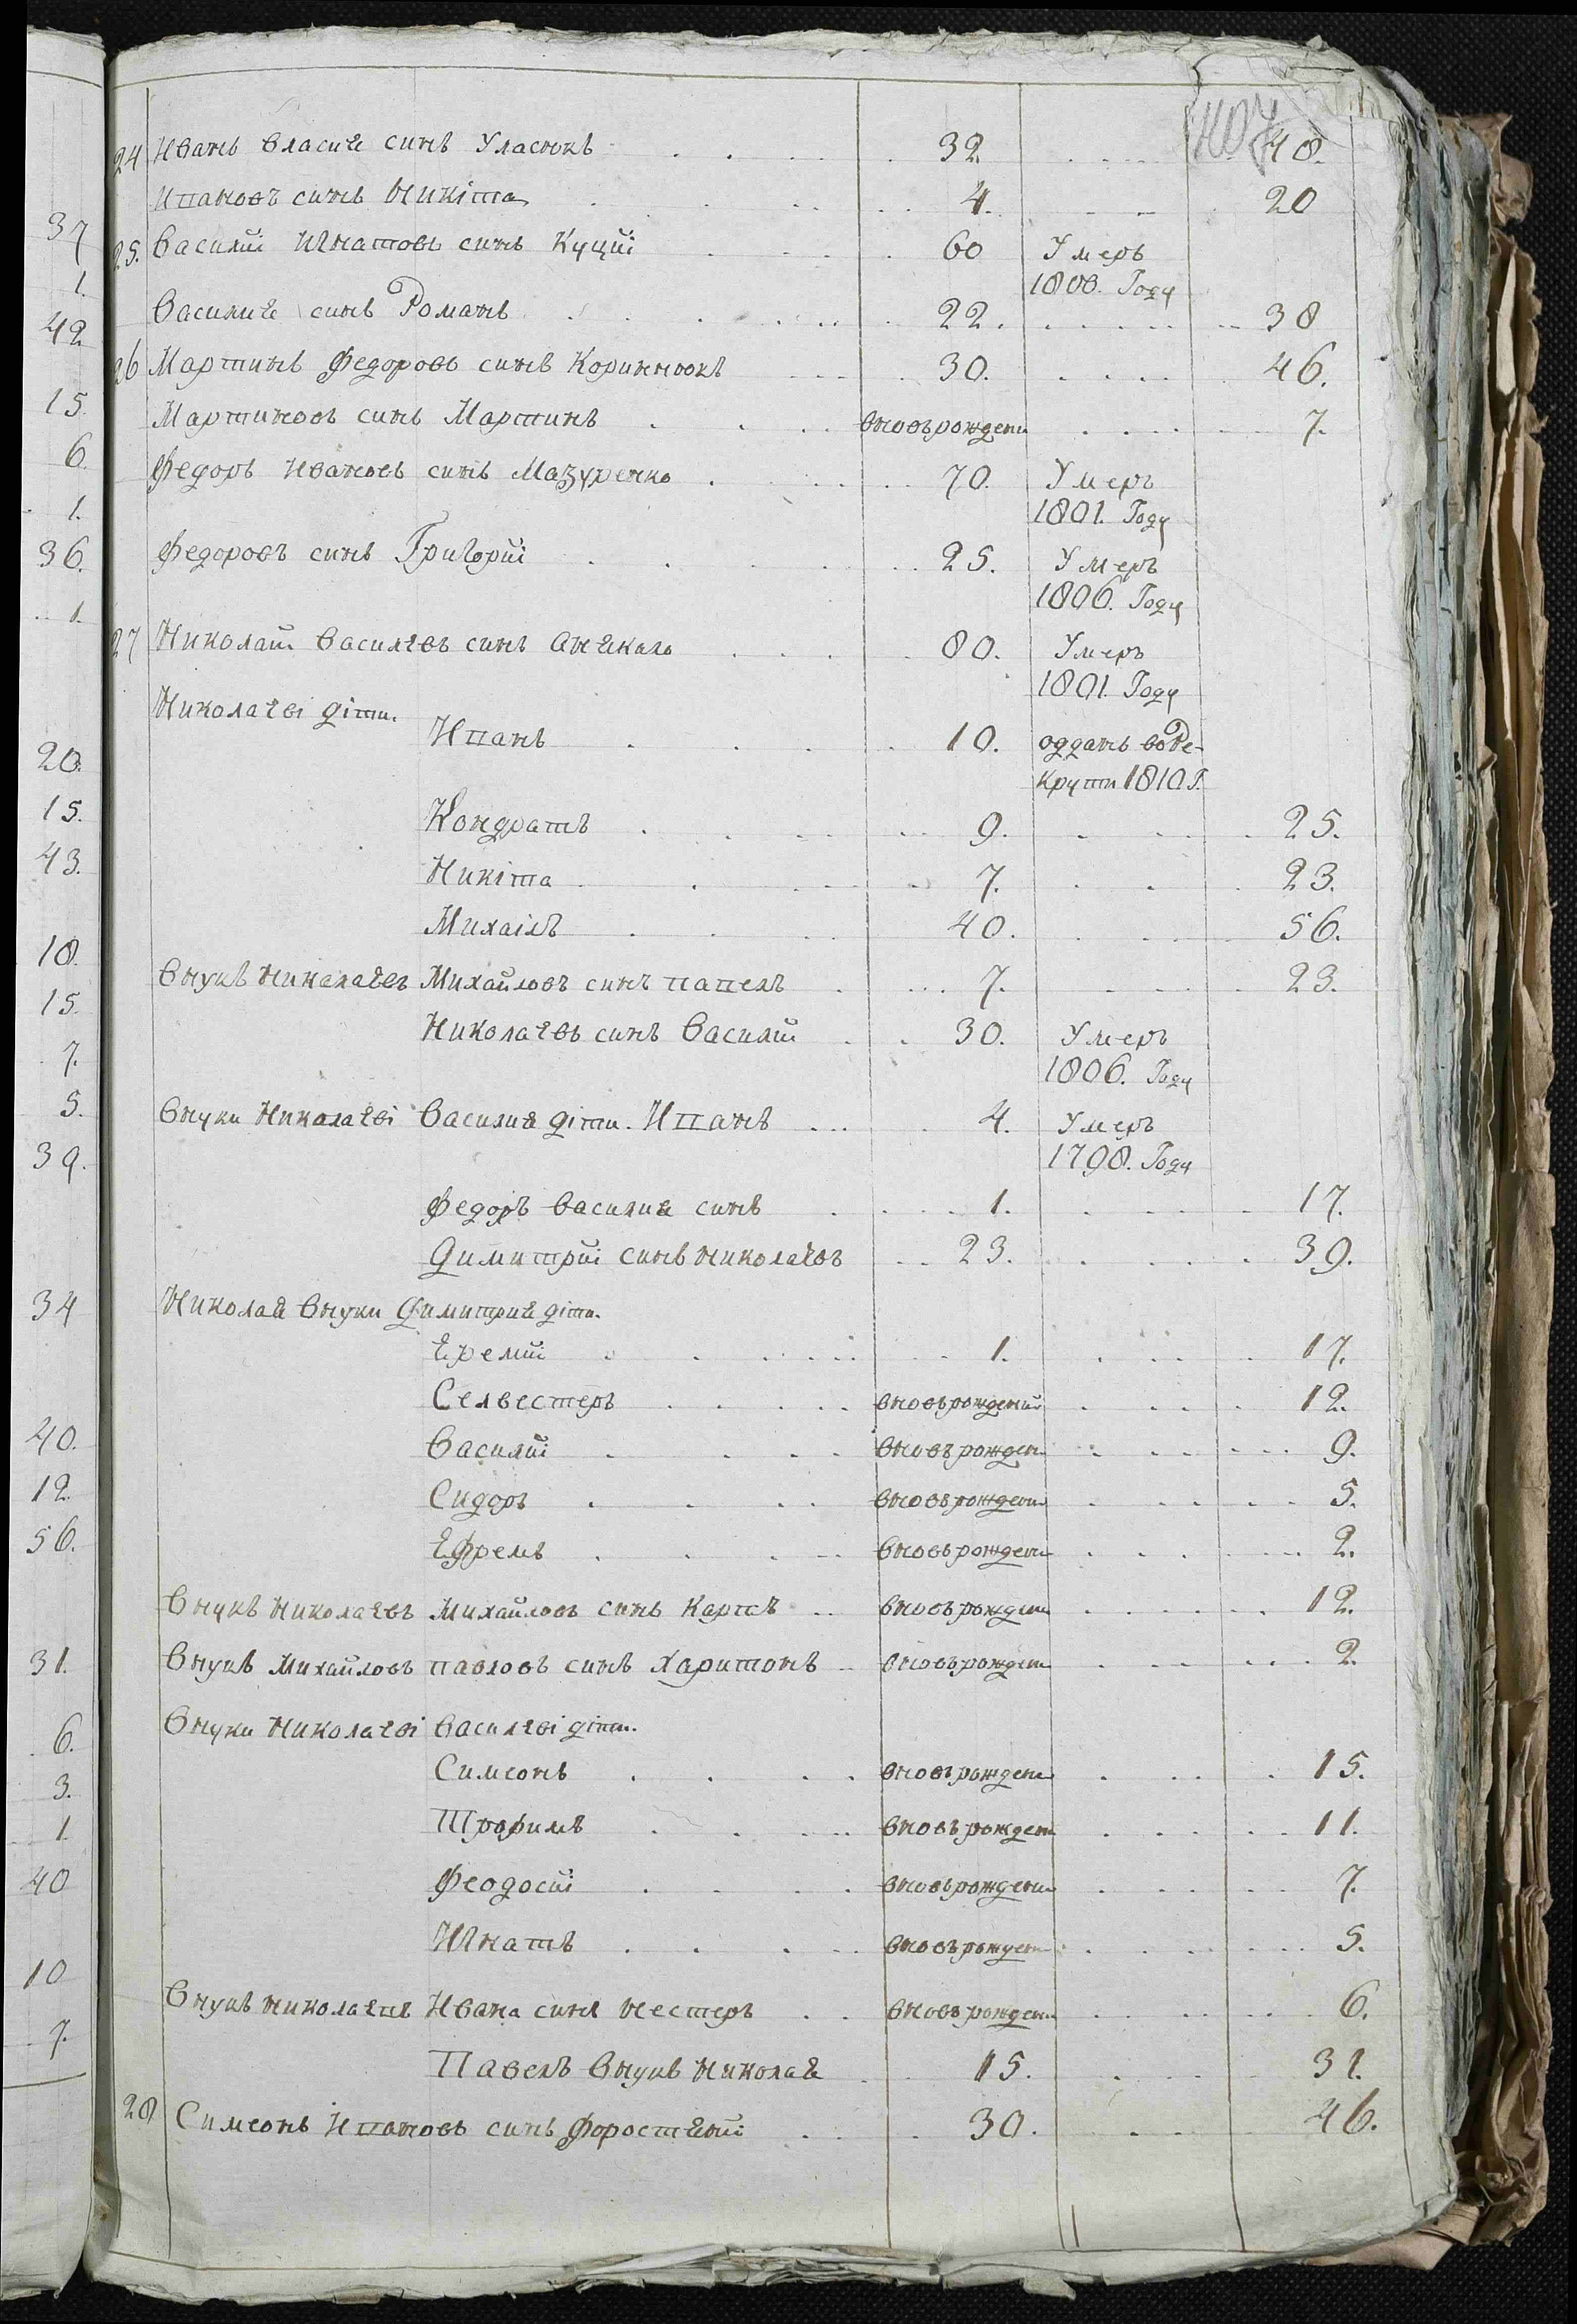 37
1.
42
15.
6.
1.
36.
1.
20.
15.
43.
18.
15.
7.
5.
39.
34
40.
12.
56.
31.
6.
3.
1.
40
10
7.
407
24 Иванъ Власиѣ синъ Уласюкъ 32. 48.
Ивановъ синъ Никіта 4. 20
25. Василий Игнатовъ синъ Куций 60 Умеръ
1800. Году
Василиѣ синъ Романъ 22. 38
26 Мартинъ Федоровъ синъ Коринюкъ 30. 46.
Мартиновъ синъ Мартинъ вновърожден 7.
Федоръ Ивановъ синъ Мазуренко 70. Умеръ
1801. Году
Федоровъ синъ Григорий 25. Умеръ
1806. Году
27 Николай Василевъ синъ 80. Умеръ
1801. Году
Николаеві діти.
Иванъ 10. оддань во Ре-
крути 1810 Г.
Кондратъ 9. 25.
Никіта 7. 23.
Михаілъ 40. 56.
Внукъ Николаевъ Михайловъ синъ Павелъ 7. 23.
Николаевъ синъ Василий 30. Умеръ
1806. Году
Внуки Николаеві Василия діти. Иванъ 4. Умеръ
1798. Году
Федоръ Василия синъ 1. 17.
Димитрий синъ Николаевъ 23. 39.
Николая Внуки Димитрия діти.
Еремий 1. 17.
Селвестеръ вновърожденый 12.
Василий вновърожден 9.
Сидоръ вновърожден 5.
Ефремъ вновърожден 2.
Внукъ Николаевъ Михайловъ синъ Карпъ вновърожден 12.
Внукъ Михайловъ Павловъ синъ Харитонъ вновърожден 2.
Внуки Николаеві Василеві діти.
Симеонъ вновърожден 15.
Трофимъ вновърожден 11.
Феодосий вновърожден 7.
Игнатъ вновърожден 5.
Внукъ Николаевъ Ивана синъ Нестеръ вновърожден 6.
Павелъ Внукъ Николая 15. 31.
28 Симеонъ Ивановъ синъ 30. 46.